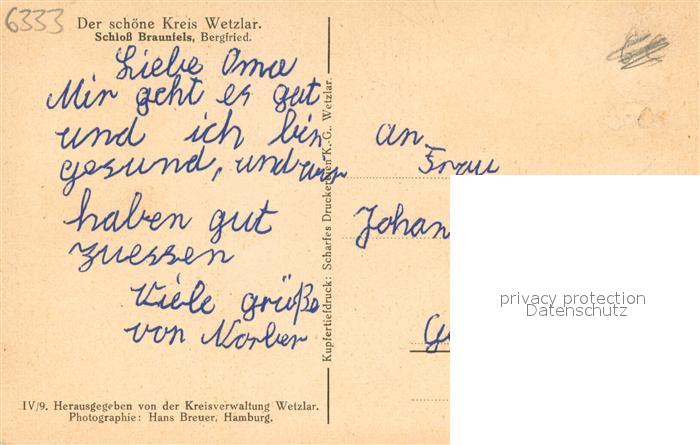 6333
Der schöne Kreis Wetzlar.
Schloß Braunfels, Bergfried.
Liebe Oma
Mir geht es gut
und ich bin
gesund, und wir
haben gut
zuessen
Viele grüße
von Norber
Kupfertiefdruck: Scharfes Druckereien K.-G. Wetzlar.
an
Frau
Johan
privacy protection
Datenschutz
IV/9. Herausgegeben von der Kreisverwaltung Wetzlar.
Photographie: Hans Breuer, Hamburg.